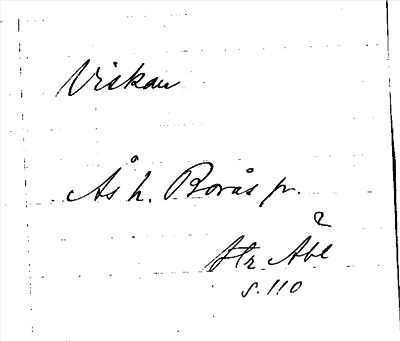 Viskan
Ås h. Borås fr.
Hr Abl
s. 110